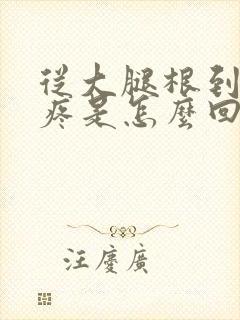 從大腿根到
疼是怎麼回
汪慶廣